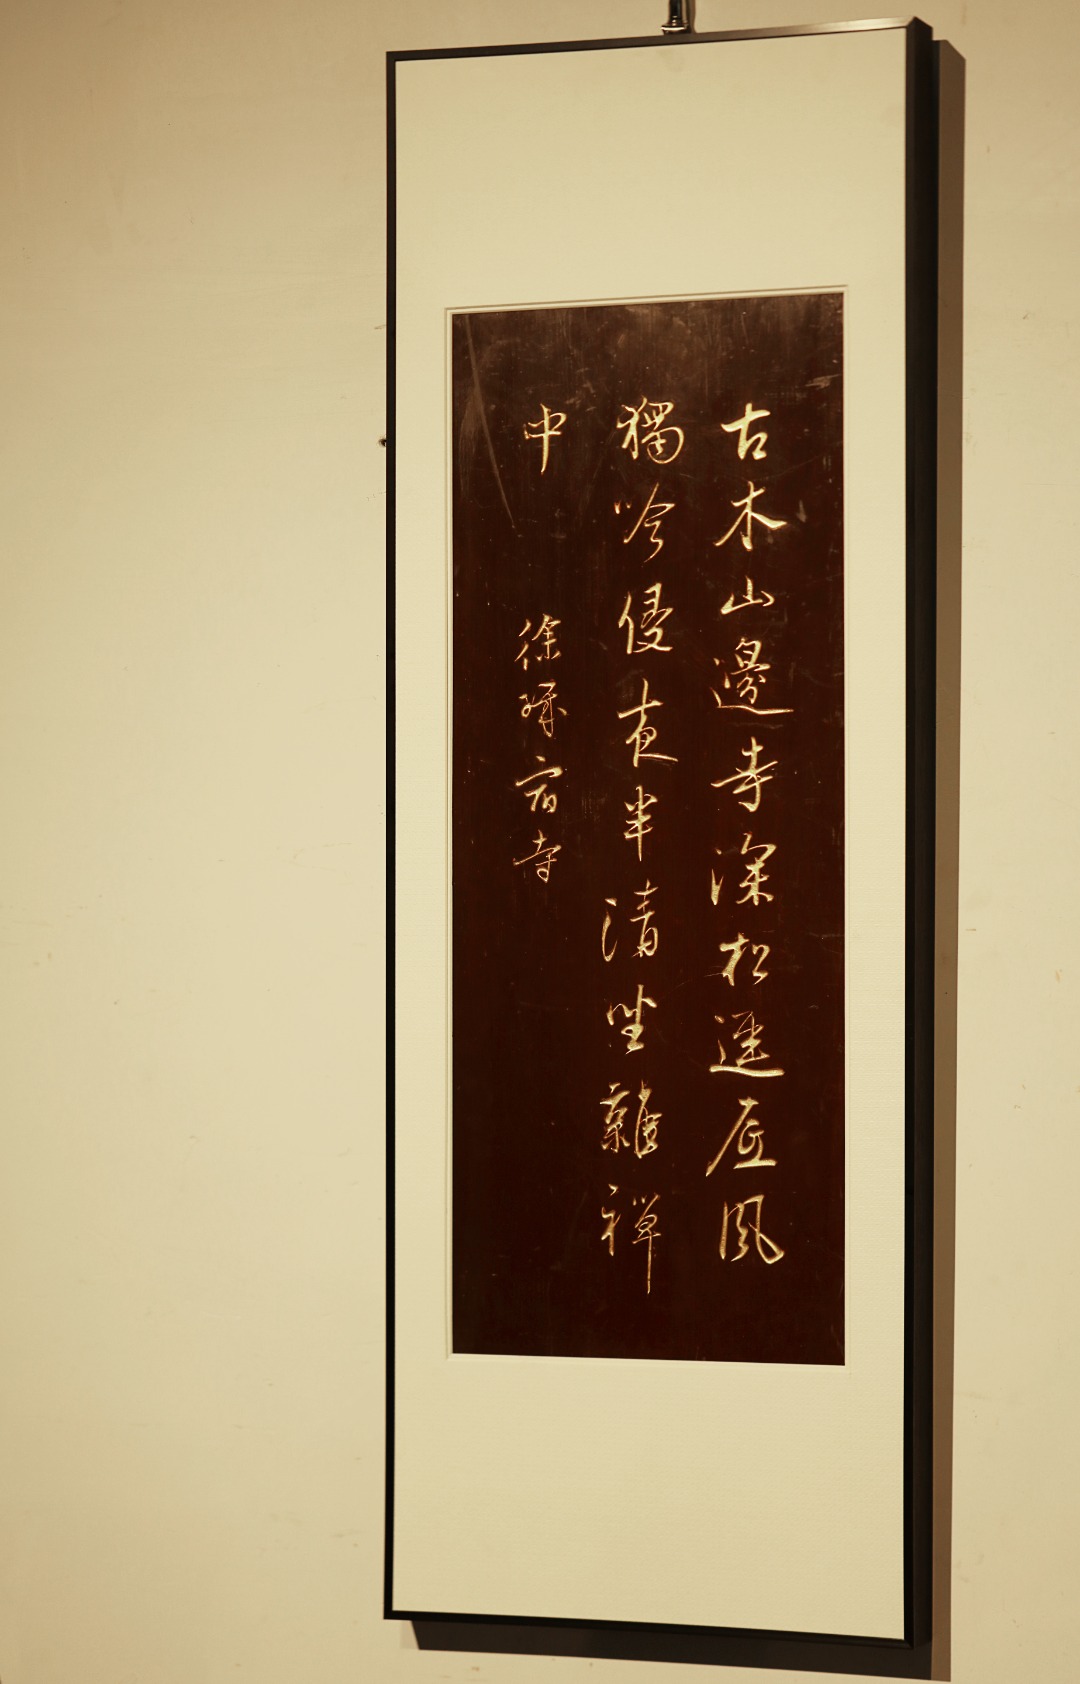 古木山邊寺深松逕底風
獨吟侵夜半清坐雜禪
中
徐璣宿寺